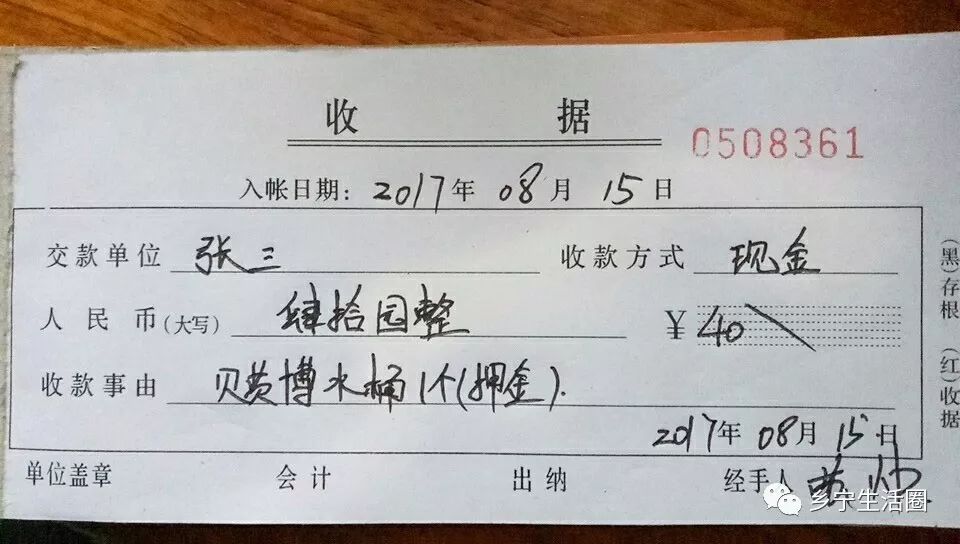 收 据
0508361
入帐日期：2017年 08月 15日
交款单位 张三 收款方式 现金
人民币(大写) 肆拾园整 ￥40
收款事由 贝黄博水桶1个(押金).
2017年 08月 15日
单位盖章 会计 出纳 经手人
(黑)存根 (红)收据
乡宁生活圈